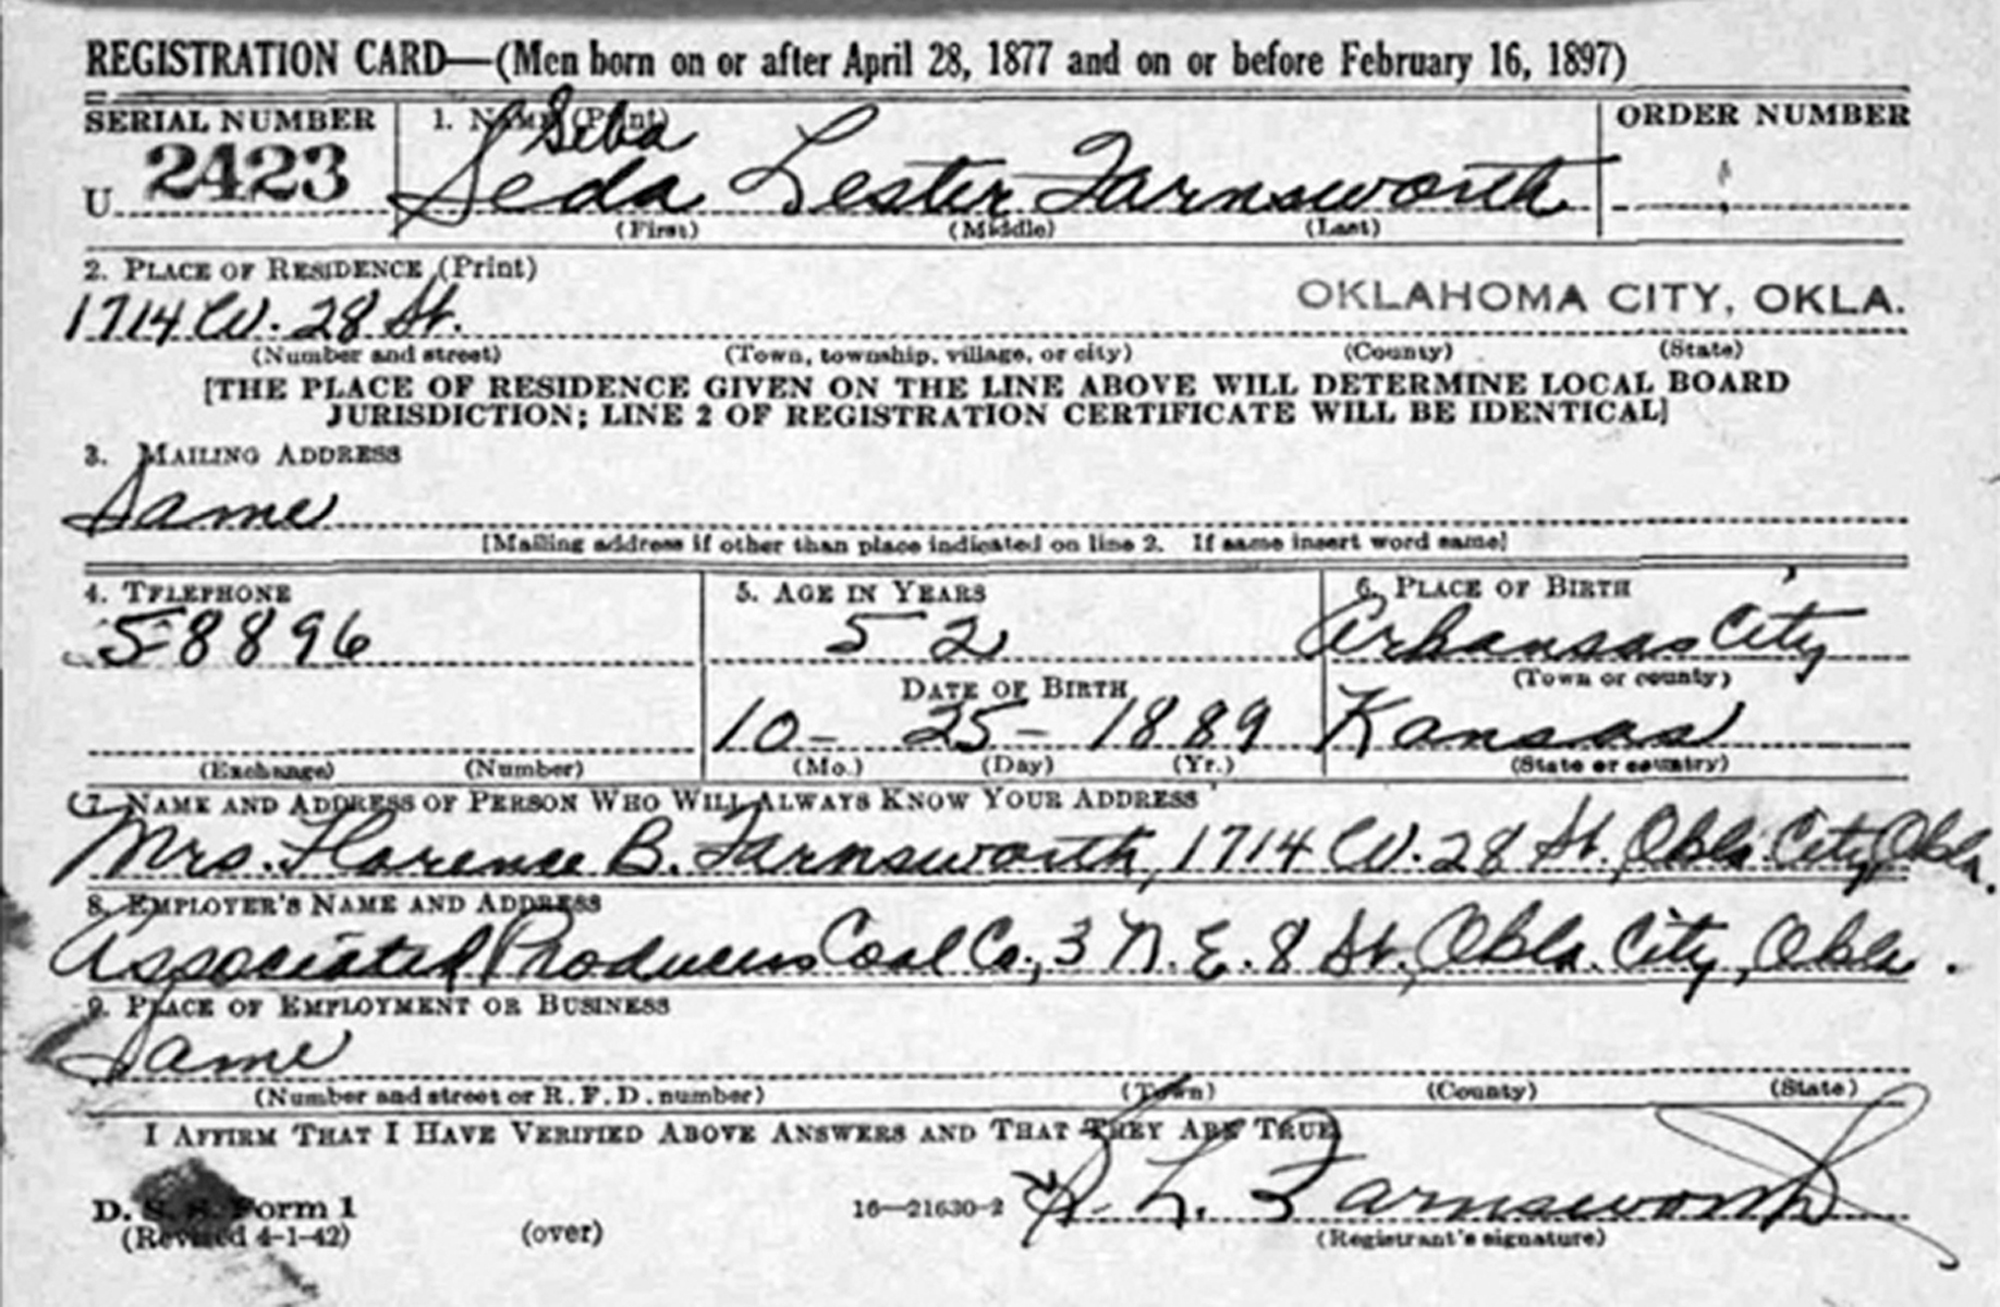 REGISTRATION CARD—(Men born on or after April 28, 1877 and on or before February 16, 1897)
SERIAL NUMBER 1. NAME (Print) ORDER NUMBER
Seba
U 2423 Seda Lester Farnsworth
(First) (Middle) (Last)
2. PLACE OF RESIDENCE (Print)
1714 W. 28 St. OKLAHOMA CITY, OKLA.
(Number and street) (Town, township, village, or city) (County) (State)
[THE PLACE OF RESIDENCE GIVEN ON THE LINE ABOVE WILL DETERMINE LOCAL BOARD
JURISDICTION; LINE 2 OF REGISTRATION CERTIFICATE WILL BE IDENTICAL]
3. MAILING ADDRESS
Same
[Mailing address if other than place indicated on line 2. If same insert word same]
4. TELEPHONE 5. AGE IN YEARS 6. PLACE OF BIRTH
58896 52 Arkansas City
(Town or county)
DATE OF BIRTH
10- 25- 1889 Kansas
(Exchange) (Number) (Mo.) (Day) (Yr.) (State or country)
7. NAME AND ADDRESS OF PERSON WHO WILL ALWAYS KNOW YOUR ADDRESS
Mrs. Florence B. Farnsworth, 1714 W. 28 St. Okla. City, Okla.
8. EMPLOYER'S NAME AND ADDRESS
Associated Producers Coal Co., 3 N. E. 8 St., Okla. City, Okla.
9. PLACE OF EMPLOYMENT OR BUSINESS
Same
(Number and street or R. F. D. number) (Town) (County) (State)
I AFFIRM THAT I HAVE VERIFIED ABOVE ANSWERS AND THAT THEY ARE TRUE.
S. L. Farnsworth
D. S. S. Form 1 16—21630-2
(Revised 4-1-42) (over) (Registrant's signature)